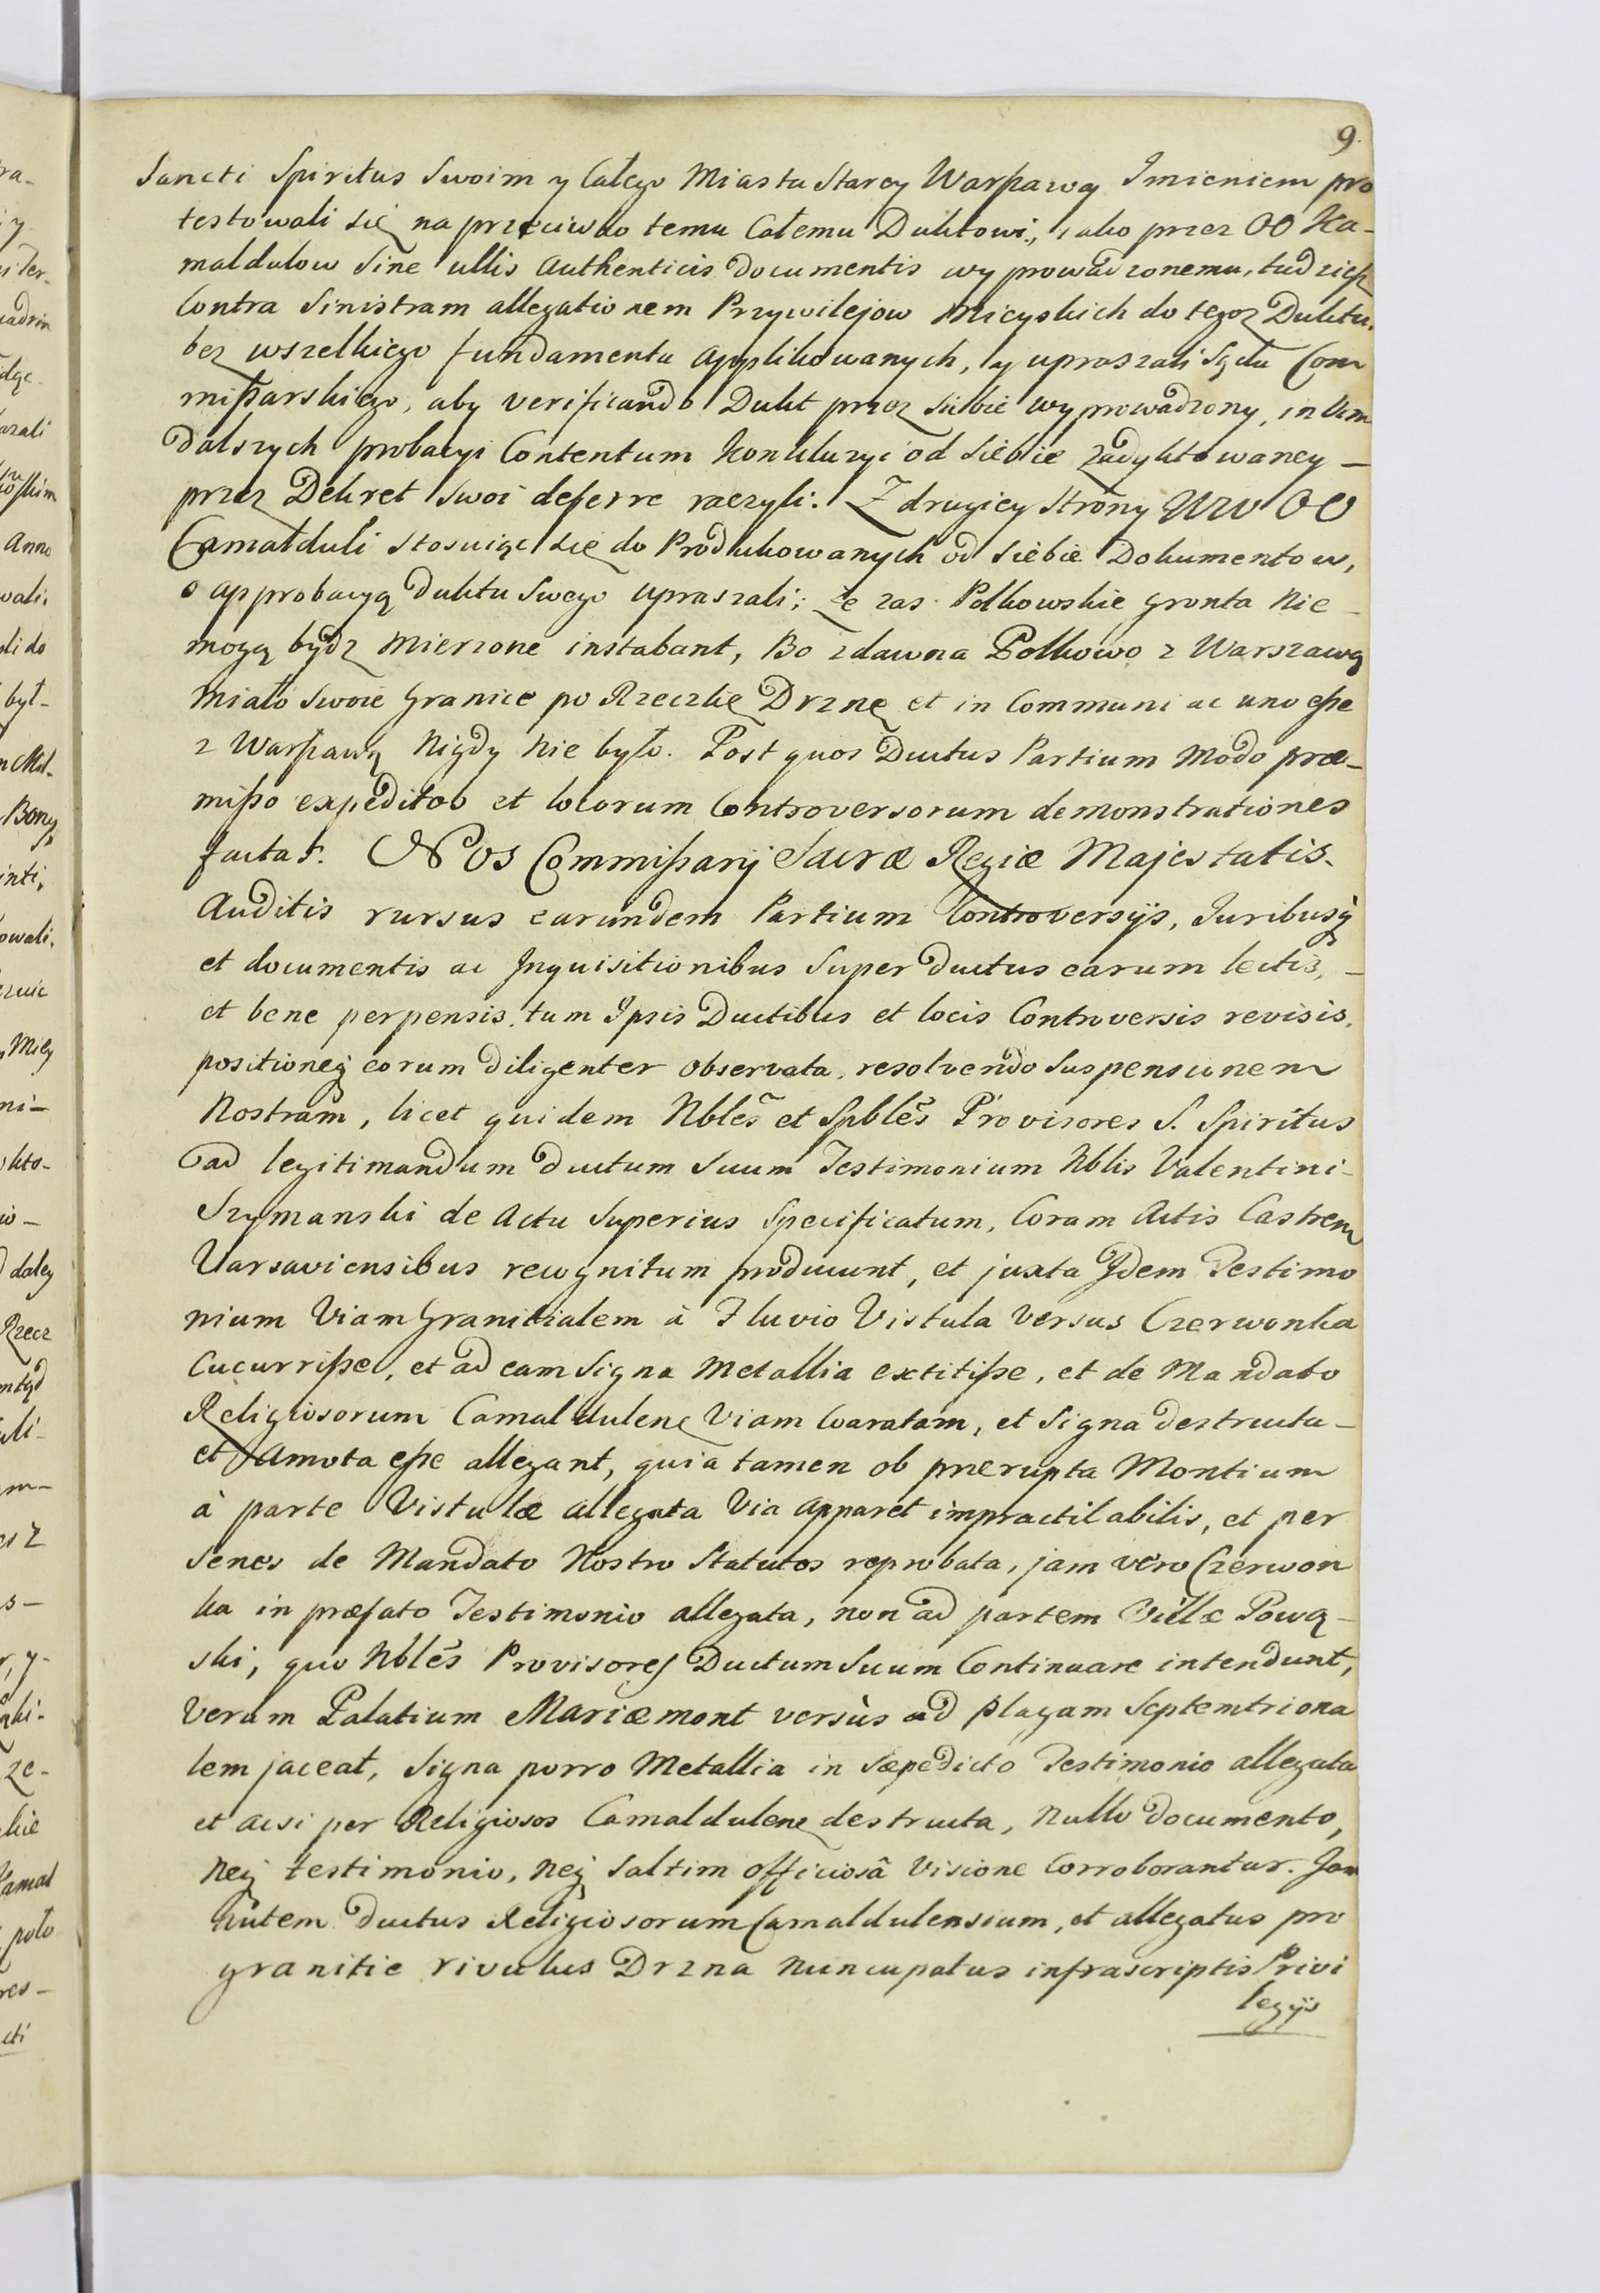 9.
Sancti Spiritus Swoim y Całego Miasta Starey Warszawy Imieniem pro
testowali się na przeciwko temu Całemu Duktowi, iako przez OO Ka-
maldulow Sine ullis Authenticis documentis wyprowadzonemu, tudziesz
Contra Sinistram allegationem Przywilejow Mieyskich do tegoz Duktu.
bez wszelkiego fundamentu applikowanych, y upraszali Sądu Com
mißarskiego, aby verificando Dukt przez siebie wyprowadzony, in Vim
dalszych probacyi Contentum Konkluzyi od Siebie zadyktowaney –
przez Dekret Swoi deferre raczyli. Z drugiey Strony WW OO
Camalduli stosuiąc się do Produkowanych od siebie Dokumentow,
o approbacyą Duktu Swego upraszali; ze zas Polkowskie gronta nie
mogą bydz mierzone instabant, Bo zdawna Polkowo z Warszawą
miało Swoie Granice po Rzeczkę Drznę et in Communi ac uno eße
z Warszawą nigdy nie było. Post quos Ductus Partium Modo præ-
mißo expeditos et locorum Controversorum demonstrationes
factas. Nos Commißarij Sacræ Regiæ Majestatis.
Auditis rursus earundem Partium Controversijs, Juribusq
et documentis ac Inquisitionibus Super ductus earum lectis, –
et bene perpensis, tum Ipsis Ductibus et locis Controversis revisis,
positioneq eorum diligenter observata, resolvendo Suspensionem
Nostram, licet quidem Nbles et Spbles Provisores S. Spiritus
ad legitimandum ductum Suum Testimonium Nblis Valentini-
Szymanski de Actu Superius Specificatum, Coram Actis Castren
Varsaviensibus recognitum producunt, et juxta Idem Testimo
nium Viam Granicialem à Fluvio Vistula Versus Czerwonka
Cucurriße, et ad eam Signa Metallia extitiße, et de Mandato
Religiosorum Camaldulen Viam Coaratam, et Signa destructa –
et Amota eße allegant, quia tamen ob prærupta Montium
à parte Vistulæ allegata Via apparet impracticabilis, et per
Senes de Mandato Nostro Statutos reprobata, jam vero Czerwon
ka in præfato Testimonio allegata, non ad partem Villæ Pową-
ski, quo Nbles Provisores Ductum Suum Continuare intendunt,
Verum Palatium Mariæmont versùs ad plagam Septemtriona
lem jaceat, Signa porro Metallia in Sæpedicto Testimonio allegata
et acsi per Religiosos Camaldulen destructa, Nullo documento,
Neq testimonio, Neq Saltim officiosâ Visione Corroborantur. Jam
Autem ductus Religiosorum Camaldulensium, et allegatus pro
granitie rivulus Drzna nuncupatus infrascriptis Privi
legijs